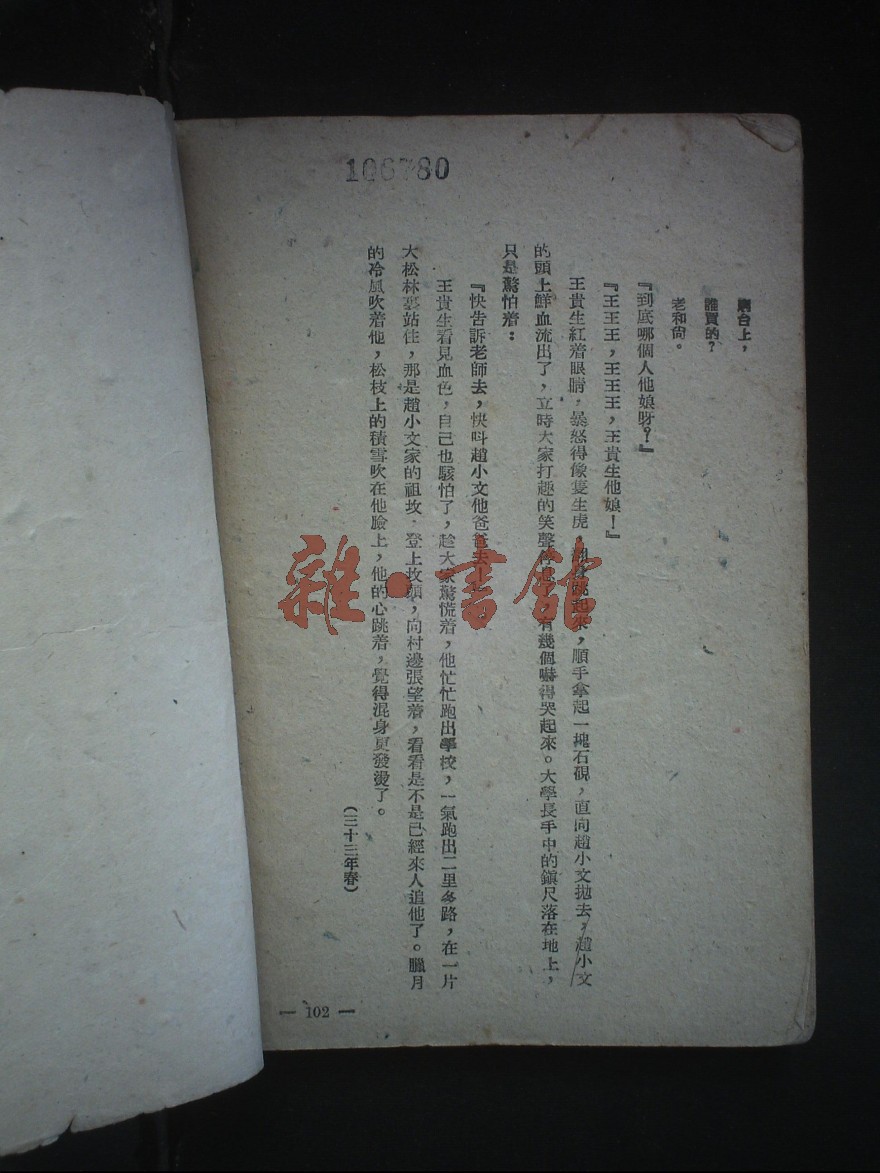 106780
台上，
誰買的？
老和尙。
『到底哪個人他娘呀？！』
『王王王，王王王，王貴生他娘！』
王貴生紅着眼睛，暴怒得像隻生虎，跳起來，順手拿起一塊石硯，直向趙小文拋去，趙小文
的頭上鮮血流出了，立時大家打趣的笑聲有幾個嚇得哭起來。大學長手中的鎭尺落在地上，
只是驚怕着：
『快告訴老師去，快呌趙小文他爸爸去！
王貴生看見血色，自己也駭怕了，趁大家驚慌着，他忙忙跑出學校，一氣跑出二里多路，在一片
大松林裏站住，那是趙小文家的祖坟，登上坟頭，向村邊張望着，看看是不是已經來人追他了。臘月
的冷風吹着他，松枝上的積雪吹在他臉上，他的心跳着，覺得混身更發燙了。
（三十三年春）
— 102 —
雜·書舘